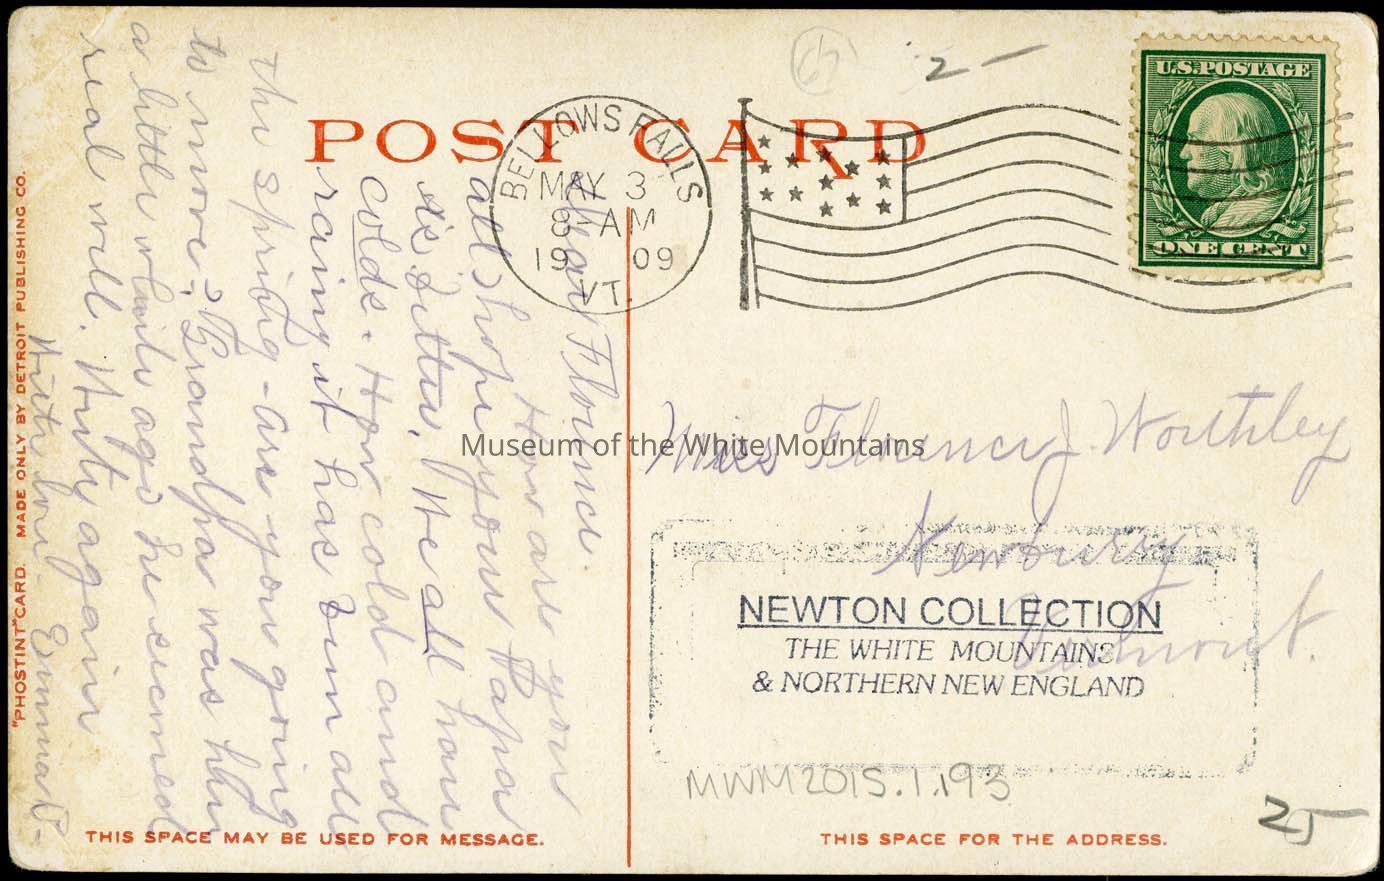 POST CARD
BELLOWS FALLS
MAY 3
8-AM
1909
VT.
U.S. POSTAGE
ONE CENT
2-
Dear Florence.
How are you
all I hope your Papa
is better. We all have
colds. How cold and
rainy it has been all
the spring - are you going
to move? Grandpa was here
a little while ago he seemed
real well. Write again
With love. Emma B-
Miss Florence J. Worthley
Newbury
Vermont.
NEWTON COLLECTION
THE WHITE MOUNTAINS
& NORTHERN NEW ENGLAND
MWM2015.1.193
25
THIS SPACE MAY BE USED FOR MESSAGE.
THIS SPACE FOR THE ADDRESS.
"PHOSTINT" CARD. MADE ONLY BY DETROIT PUBLISHING CO.
Museum of the White Mountains